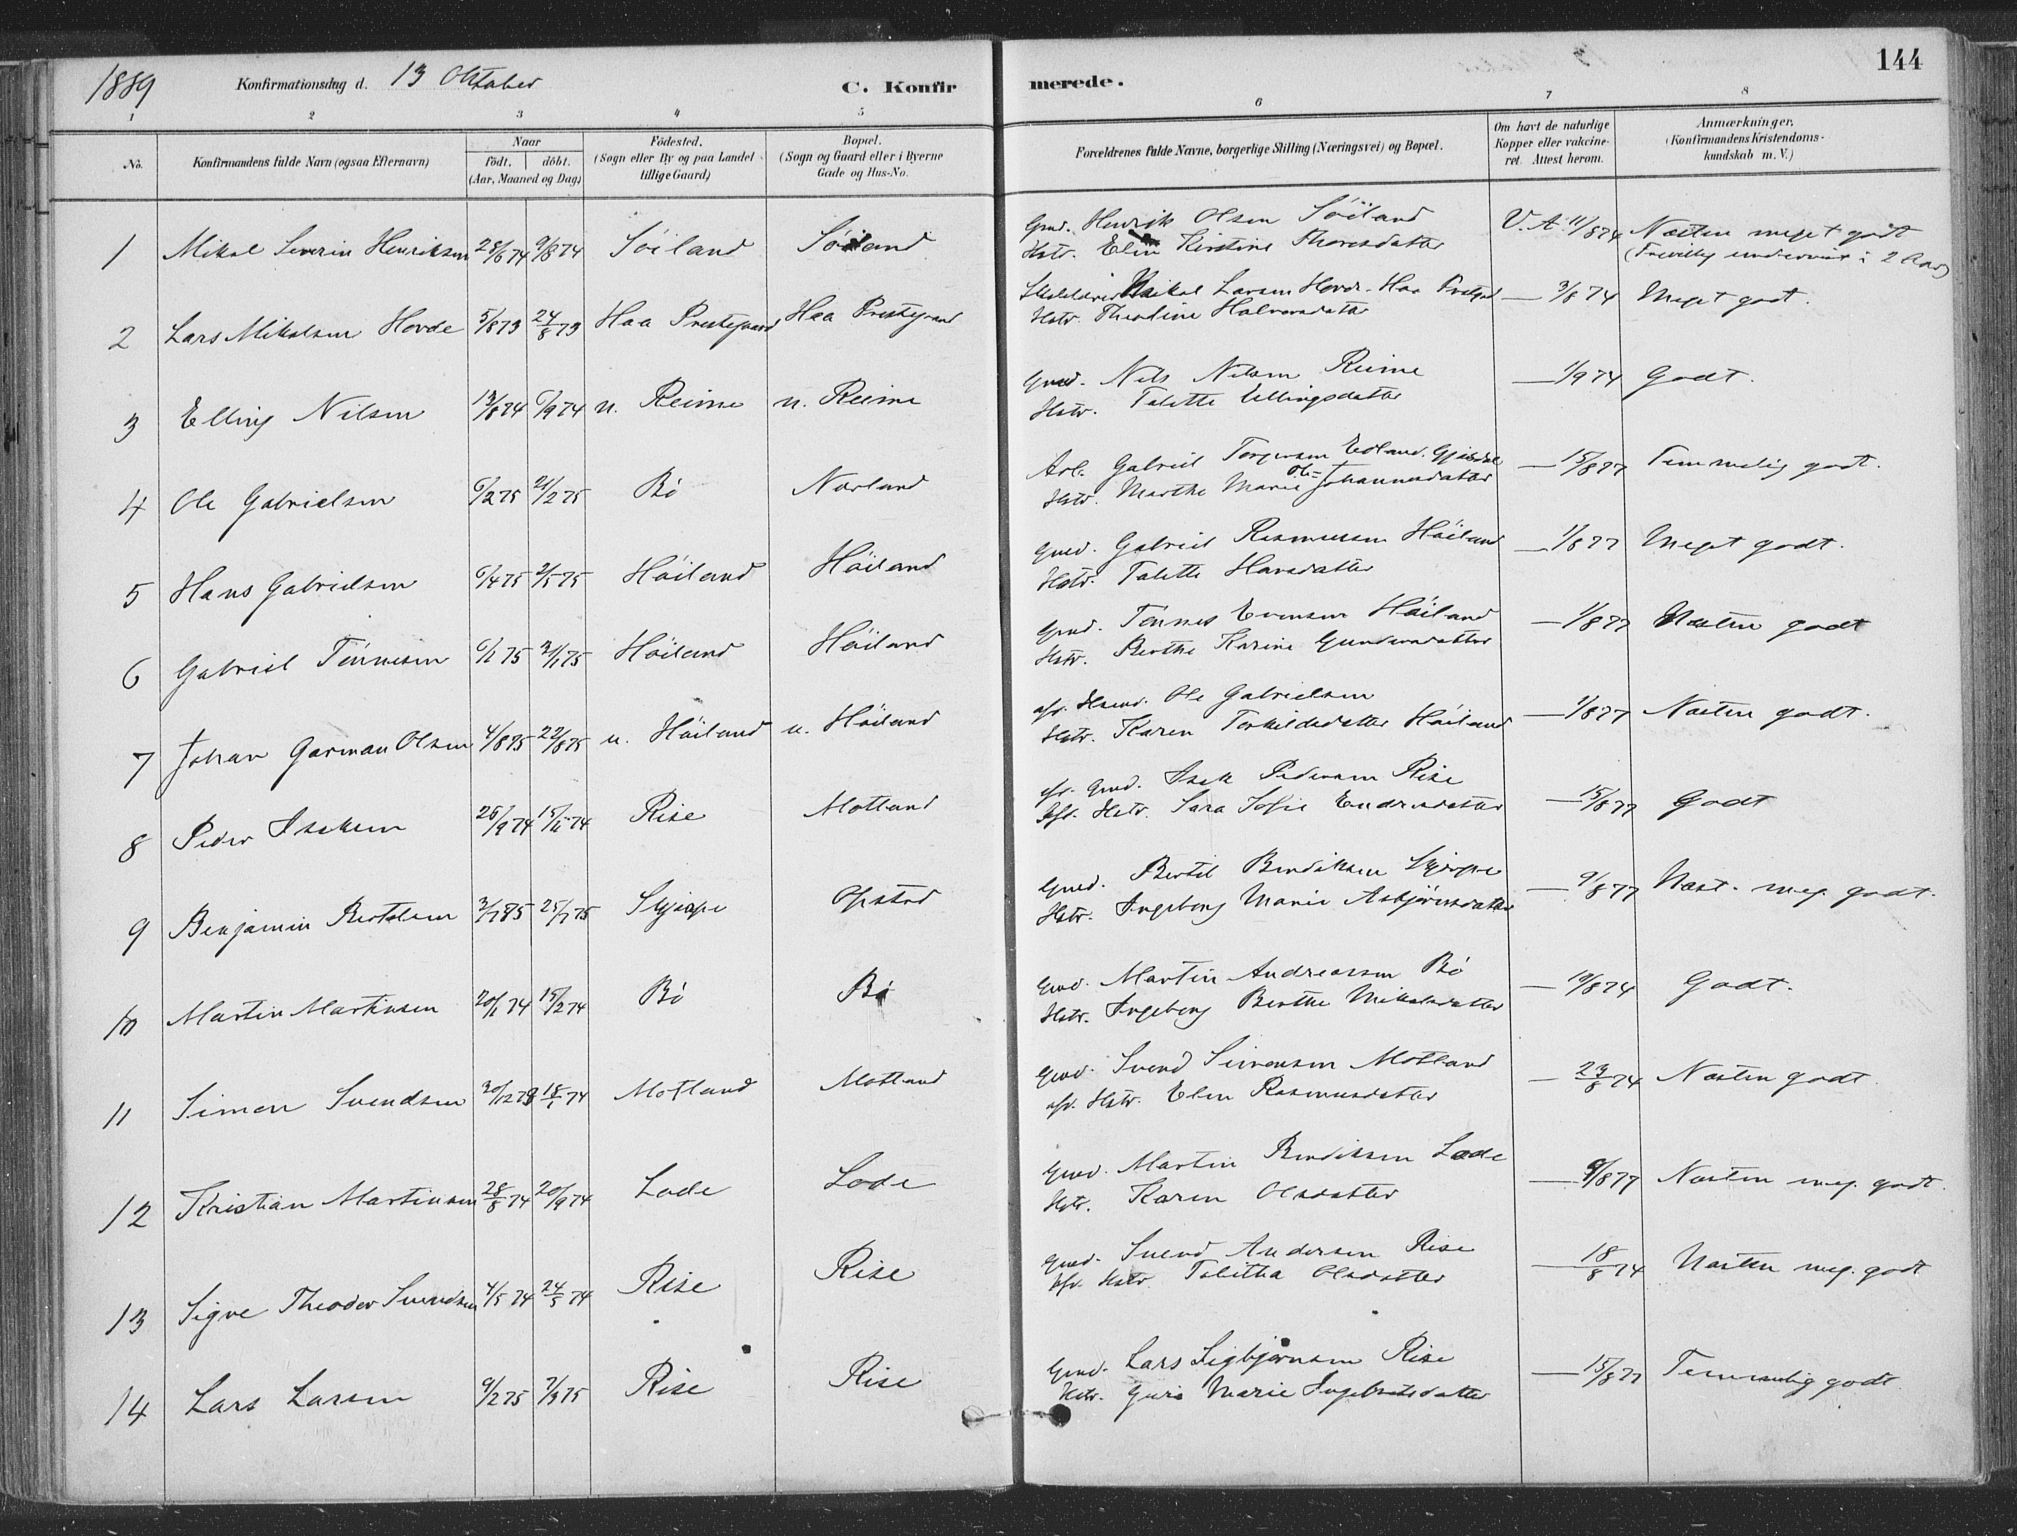 1889 Konfirmationsdag d. 13 Oktober C. Konfirmerede. 144
1 2 3 4 5 6 7 8
No. Konfirmandens fulde Navn (ogsaa Efternavn) Naar født. døbt. (Aar, Maaned og Dag) Fødested. (Sogn eller By og paa Landet tillige Gaard) Bopæl. (Sogn og Gaard eller i Byerne Gade og Hus-No. Forældrenes fulde Navne, borgerlige Stilling (Næringsvei) og Bopæl. Om havt de naturlige Kopper eller vakcineret. Attest herom. Anmærkninger. (Konfirmandens Kristendomskundskab m. V.)
1 Mikal Severin Henriksen 28/6 74 9/8 74 Söiland Söiland Gmd. Henrik Olsen Söiland V. A. 11/8 74 Næsten meget godt
Hstr. Elin Kirstine Thoresdatter (Frivillig underviist i 2 Aar)
2 Lars Mikalsen Hovde 5/8 73 24/8 73 Haa Prestegaard Haa Prestegaard Mikal Larsen Hovde. Haa — 3/8 74 Meget godt.
Hstr. Theoline Halvorsdatter
3 Elling Nilsen 13/8 74 6/9 74 n. Reime n. Reime Gmd. Nils Nilsen Reime — 1/9 74 Godt.
Hstr. Talette Ellingsdatter
4 Ole Gabrielsen 6/2 75 21/2 75 Bö Nærland Arb. Gabriel Torgersen Edland. Gjæsdal — 15/8 77 Temmelig godt.
Hstr. Marthe Marie Johannesdatter
5 Hans Gabrielsen 6/4 75 2/5 75 Höiland Höiland Gmd. Gabriel Rasmussen Höiland — 1/8 77 Meget godt.
Hstr. Talette Hansdatter
6 Gabriel Tönnesen 6/1 75 31/1 75 Höiland Höiland Gmd. Tönnes Evensen Höiland — 1/8 77 Næsten godt
Hstr. Berthe Karine Gundersdatter
7 Johan Garman Olsen 4/8 75 22/8 75 n. Höiland n. Höiland afd. Ole Gabrielsen — 1/8 77 Næsten godt.
Hstr. Karen Torkildsdatter Höiland
8 Peder Isaksen 26/9 74 15/11 74 Rise Motland Gmd. Isak Pedersen Rise — 15/8 77 Godt
Hstr. Sara Sofie Endresdatter
9 Benjamin Bertelsen 25/7 75 Skjærpe Opstad Gmd. Bertil Bendiksen Skjærpe — 9/8 77 Næst. meg. godt.
Hstr. Ingeborg Marie Asbjörnsdatter
10 Martin Martinsen 20/1 74 15/2 74 Bö Bö Gmd. Martin Andreassen Bö — 10/8 74 Godt.
Hstr. Ingeborg Berthe Mikalsdatter
11 Simon Svendsen 30/12 73 18/1 74 Motland Motland Gmd. Svend Simonsen Motland — 23/8 74 Næsten godt.
afd. Hstr. Elen Rasmusdatter
12 Kristian Martinsen 28/8 74 20/9 74 Lode Lode Gmd. Martin Bendiksen Lode — 9/8 77 Næsten meg. godt.
Hstr. Karen Olsdatter
13 Sigve Theodor Svendsen 4/5 74 24/5 74 Rise Rise Gmd. Svend Andersen Rise — 18/8 74 Næsten meg. godt
Hstr. Talitha Olsdatter
14 Lars Larsen 9/2 75 7/3 75 Rise Rise Gmd. Lars Sigbjørnsen Rise — 15/8 77 Temmelig godt
Hstr. Guri Marie Ingebretsdatter